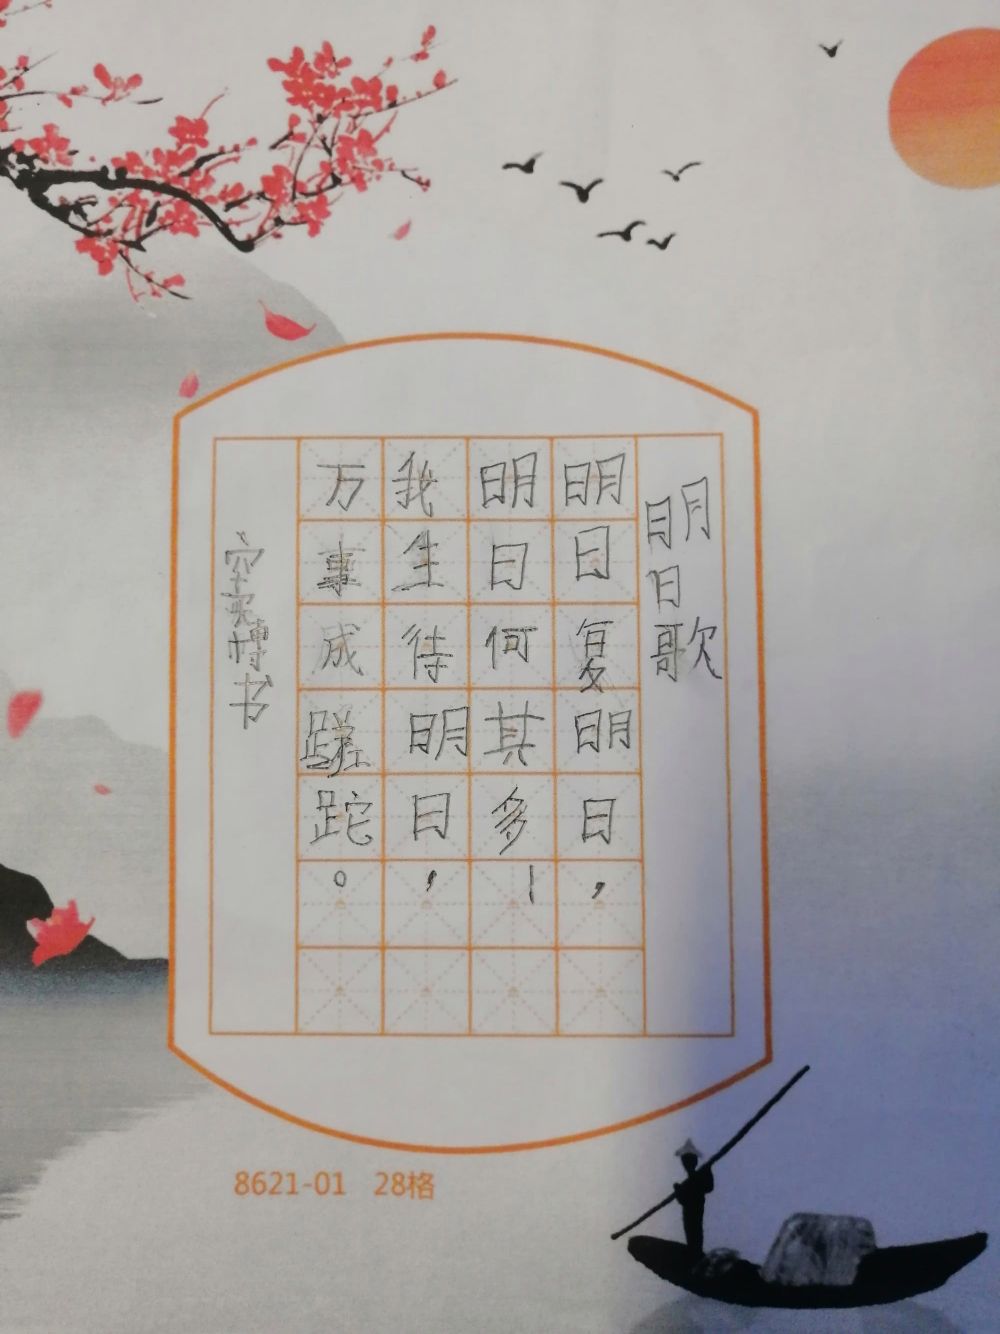 明日歌
明日复明日，
明日何其多！
我生待明日，
万事成蹉跎。
博书
8621-01 28格